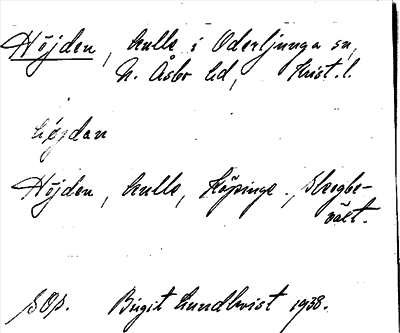 Höjden, kulle i Oderljunga sn,
N. Åsbo hd, Krist. l.
höjdan
Höjden, kulle, Köpinge, skogbe-
växt.
SOp. Birgit Lundkvist 1938.